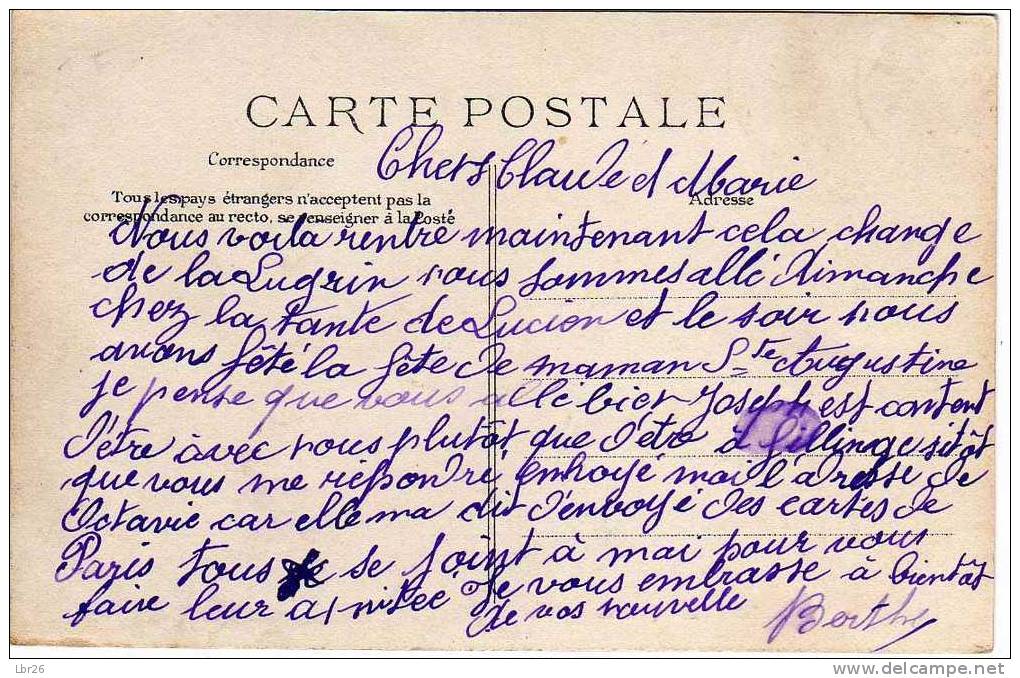 CARTE POSTALE
Correspondance
Chers Claude et Marie
Tous les pays étrangers n'acceptent pas la
Adresse
correspondance au recto, se renseigner à la Poste
Nous voila rentré maintenant cela change
de la Lugrin nous sommes allé dimanche
chez la tante de Lucien et le soir nous
avons fêté la fête de maman Ste Augustine
je pense que vous allé bien Joseph est content
d'être avec nous plutôt que d'être à fillinge sitôt
que vous me répondré envoyé moi l'adresse de
Octavie car elle ma dit d'envoyé des cartes de
Paris tous se joint à moi pour vous
faire leur amitée Je vous embrasse à bientôt
de vos nouvelle
Berthe
Lbr26
delcampe.net